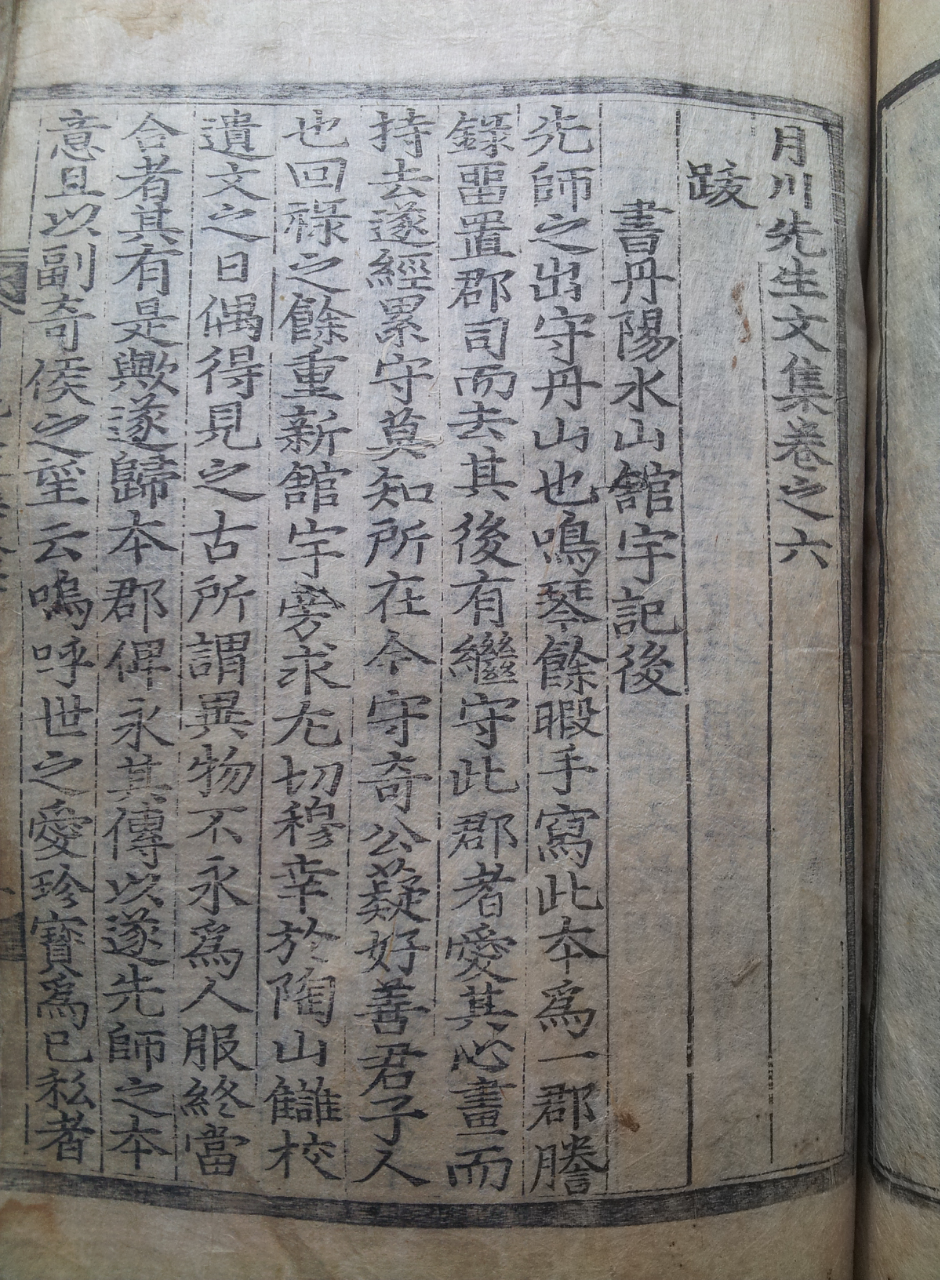 月川先生文集卷之六
跋
書丹陽水山舘宇記後
先師之出守丹山也鳴琴餘暇手寫此本爲一郡謄
錄留置郡司而去其後有繼守此郡者愛其心畫而
持去遂經累守莫知所在今守奇公薿好善君子人
也回祿之餘重新舘宇旁求尤切穆幸於陶山讎校
遺文之日偶得見之古所謂異物不永爲人服終當
合者其有是歟遂歸本郡俾永其傳以遂先師之本
意且以副奇侯之望云嗚呼世之愛珍寶爲已私者